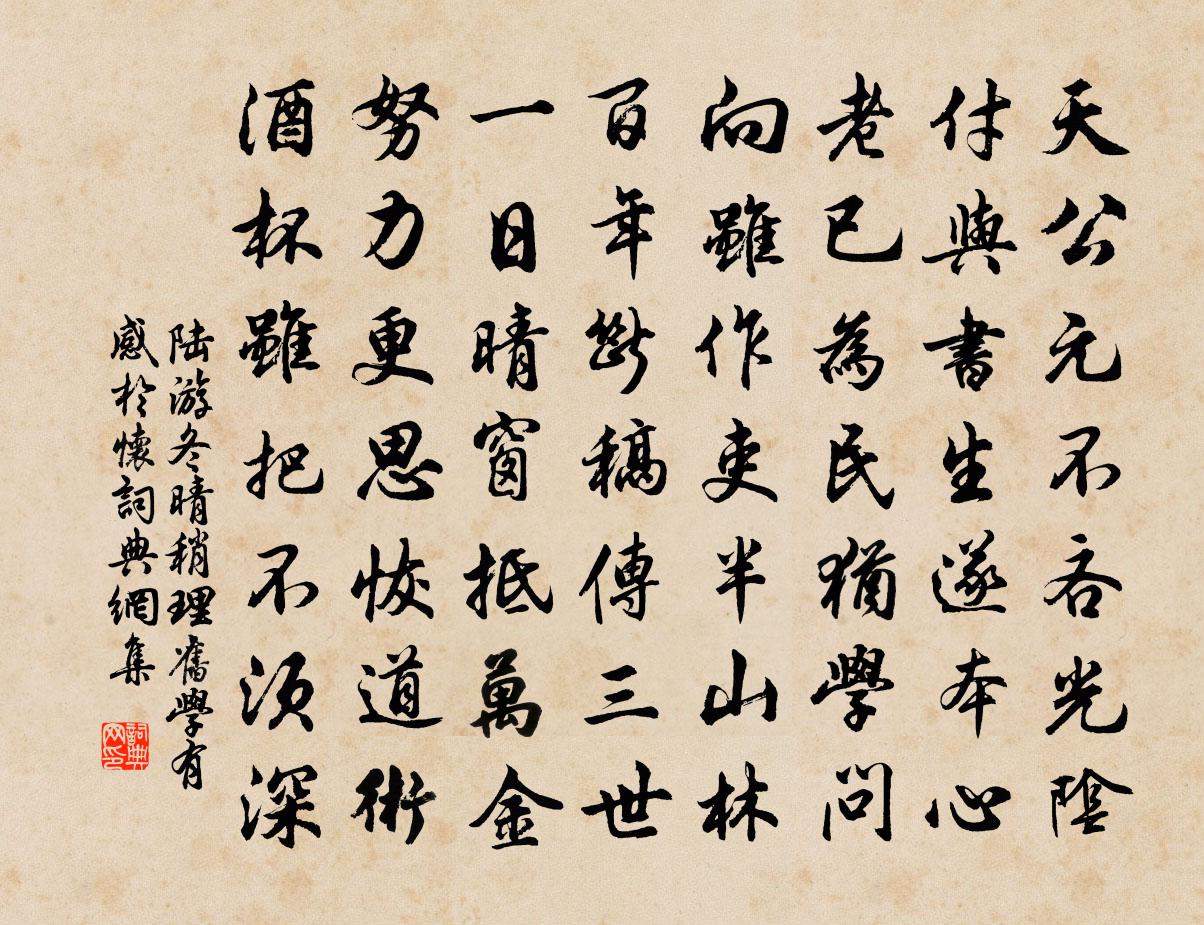 天公元不吝光陰
付與書生遂本心
老已為民猶學問
向雖作吏半山林
百年斷稿傳三世
一日晴窗抵萬金
努力更思恢道術
酒杯雖把不須深
陆游冬晴稍理舊學有
感於懷詞典網集
詞典网印